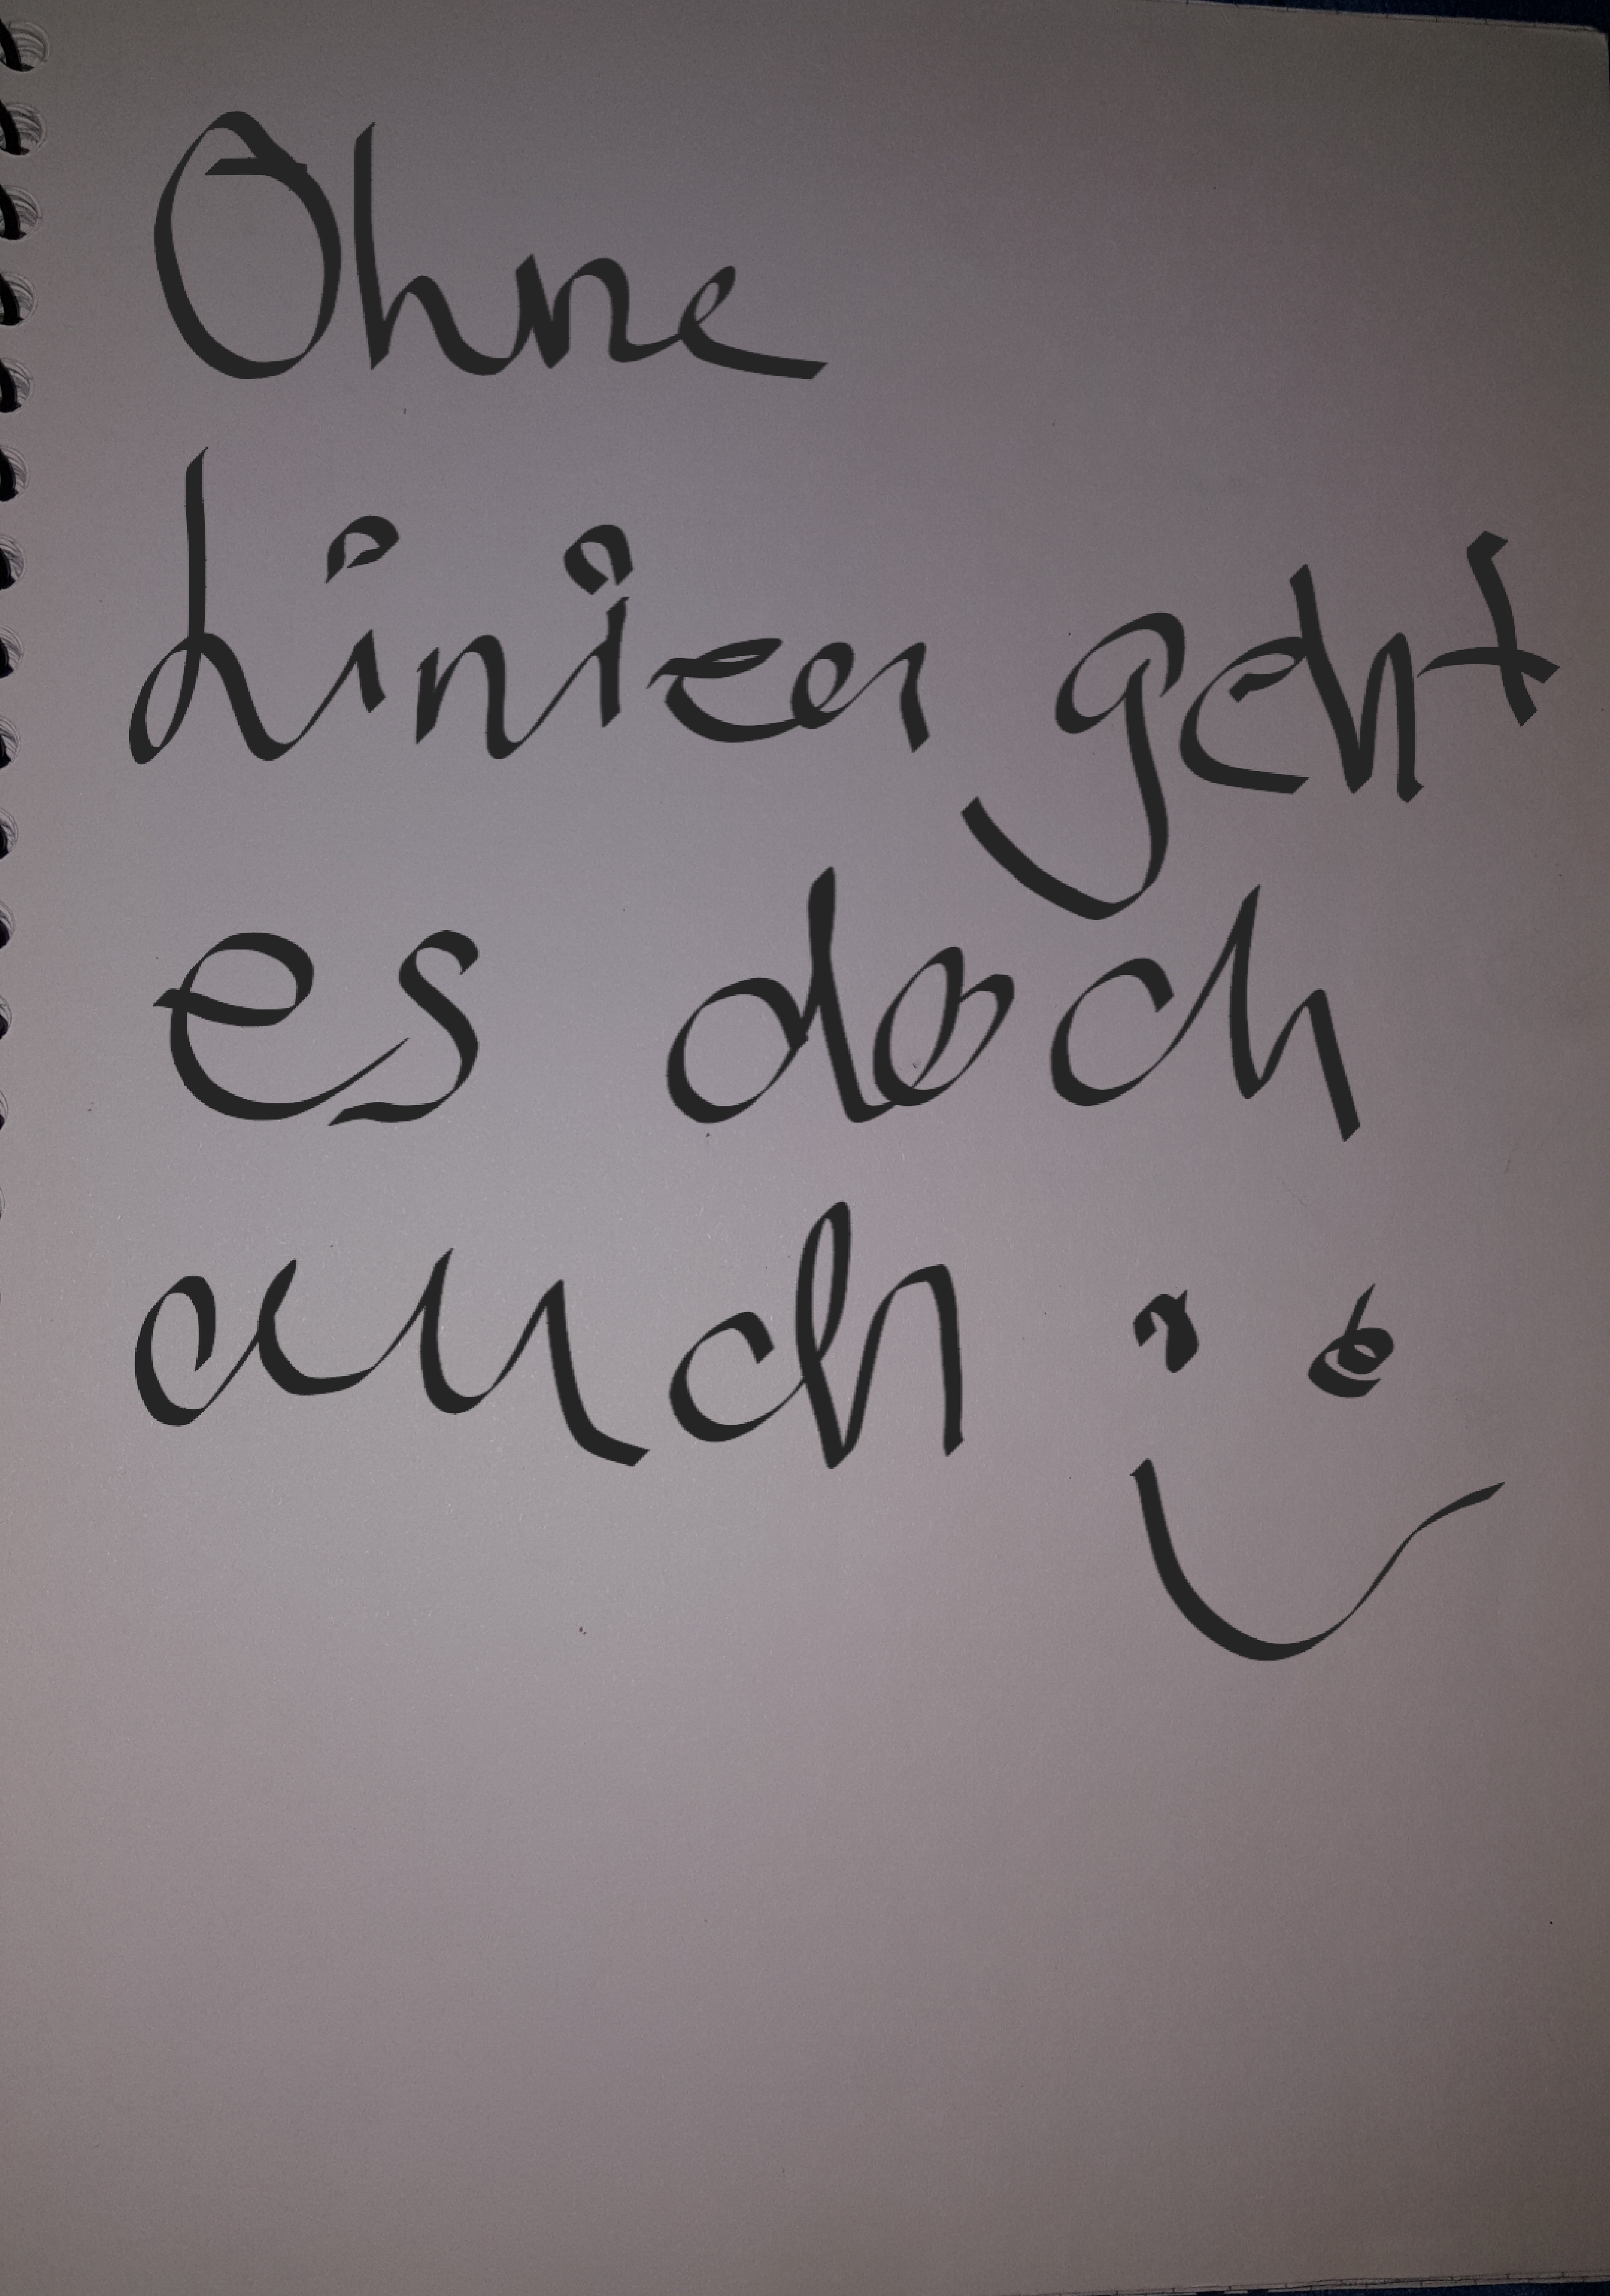 Ohne
Linien geht
es doch
auch